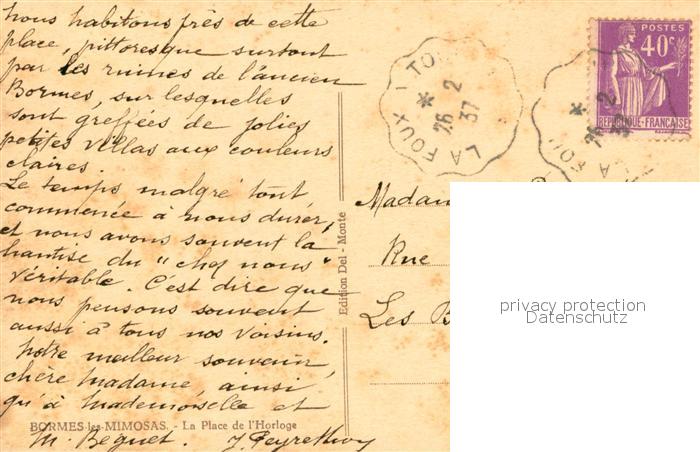 nous habitons près de cette
place, pittoresque surtout
par les ruines de l'ancien
Bormes, sur lesquelles
sont greffées de jolies
petites villas aux couleurs
claires.
Le temps malgré tout
commence à nous durer,
et nous avons souvent la
hantise du "chez nous"
véritable. C'est dire que
nous pensons souvent
aussi à tous nos voisins.
Notre meilleur souvenir,
chère Madame, ainsi
qu'à Mademoiselle et
M. Beguet.
BORMES-les-MIMOSAS. - La Place de l'Horloge
Edition Del-Monte
LA FOUX
26 2
37
POSTES
40c
REPUBLIQUE-FRANÇAISE
26 2
37
LA FOU
Madam
Rue
Les B
privacy protection
Datenschutz